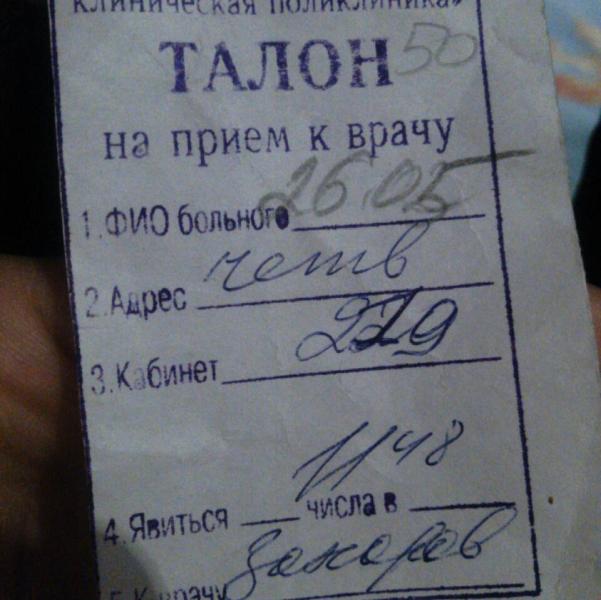 клиническая поликлиника»
ТАЛОН 50
на прием к врачу
26.05
1.ФИО больного
четв
2.Адрес
3.Кабинет 219
11 48
4.Явиться ___ числа в ___
5.К врачу Захаров